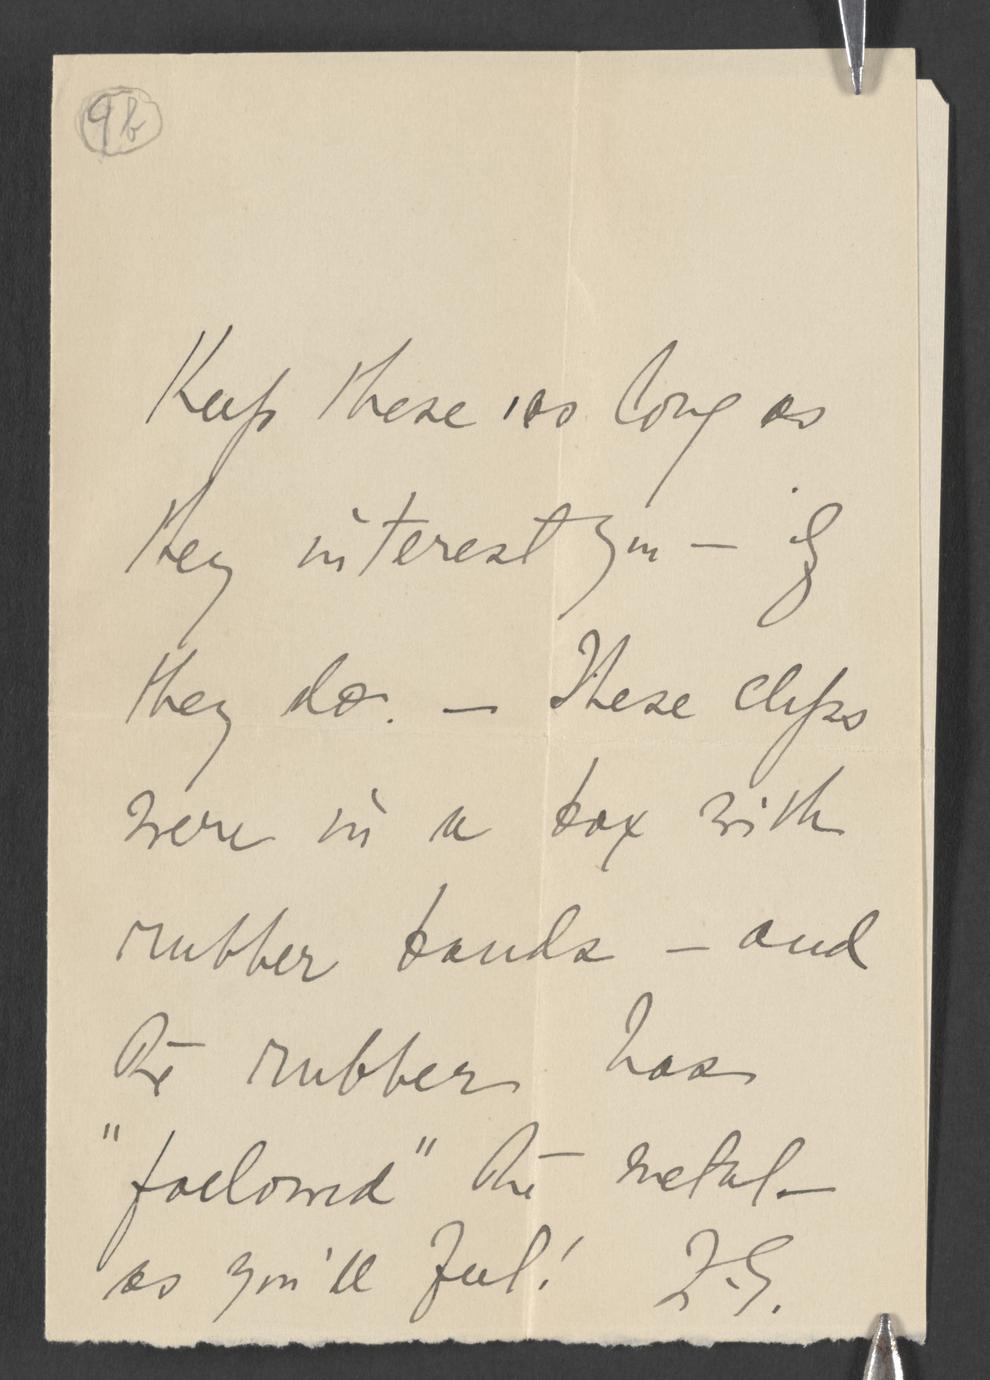 9b
Keep these as long as
they interest you — if
they do. — These clips
were in a box with
rubber bands — and
the rubber has
"followed" the metal —
as you'll feel! Z.G.